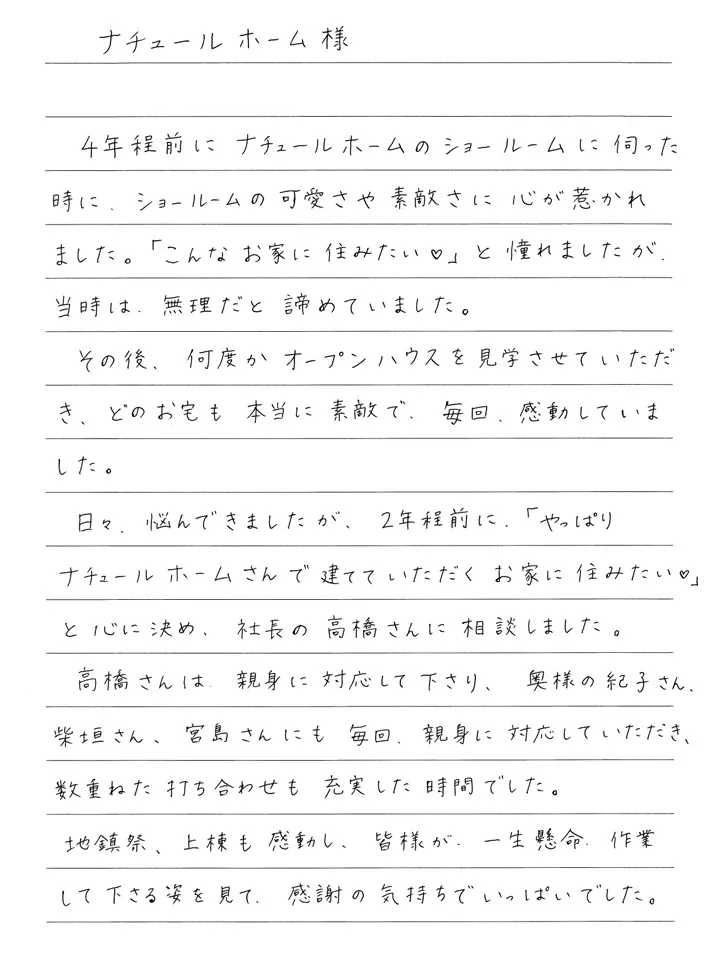 ナチュールホーム様
4年程前に ナチュールホームのショールームに伺った
時に、ショールームの可愛さや素敵さに心が惹かれ
ました。「こんなお家に住みたい♡」と憧れましたが、
当時は、無理だと諦めていました。
その後、何度かオープンハウスを見学させていただ
き、どのお宅も本当に素敵で、毎回、感動していま
した。
日々、悩んできましたが、2年程前に、「やっぱり
ナチュールホームさんで建てていただくお家に住みたい♡」
と心に決め、社長の高橋さんに相談しました。
高橋さんは、親身に対応して下さり、奥様の紀子さん、
柴垣さん、宮島さんにも毎回、親身に対応していただき、
数重ねた打ち合わせも充実した時間でした。
地鎮祭、上棟も感動し、皆様が、一生懸命、作業
して下さる姿を見て、感謝の気持ちでいっぱいでした。